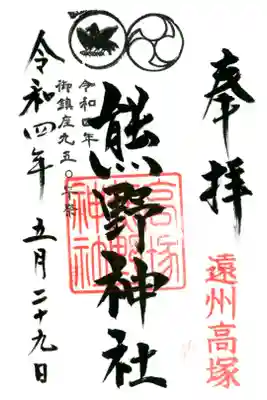 奉拝
遠州高塚
熊野神社
高塚熊野神社
令和四年
御鎮座九五〇年祭
令和四年 五月二十九日